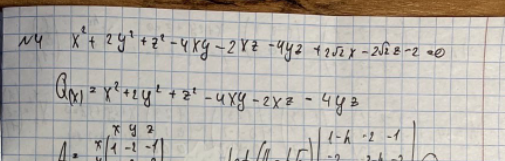 N4 x² + 2y² + z² - 4xy - 2xz - 4yz + 2√2x - 2√2z - 2 = 0
Q(x) = x² + 2y² + z² - 4xy - 2xz - 4yz
x y z
x | 1 -2 -1 | 1-λ -2 -1